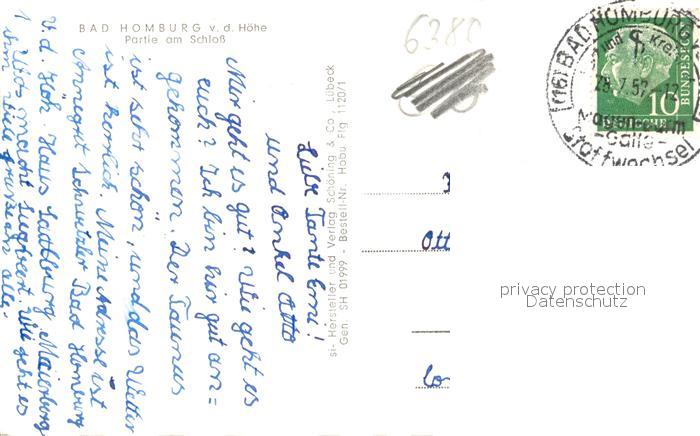 BAD HOMBURG v. d. Höhe
Partie am Schloß
6380
Liebe Tante Erni!
und Onkel Otto
Mir geht es gut? Wie geht es
euch? Ich bin hir gut an=
gekommen. Der Taunus
ist sehr schön, und das Wetter
ist herrlich. Meine Adresse ist
Annegret Schnetzler Bad Homburg
v. d. Höh. Haus Maierberg
Was macht Siegbert. Wie geht es
ihm viele grüße an alle.
si- Hersteller und Verlag Schöning & Co Lübeck
Gen. SH 01999 - Bestell-Nr. Hobu. Flg 1120/1
(16) BAD HOMBURG
und Kreis
28.7.57
Magen-Darm
-Galle-
Stoffwechsel
10
DEUTSCHE
BUNDESPOST
Ott
privacy protection
Datenschutz